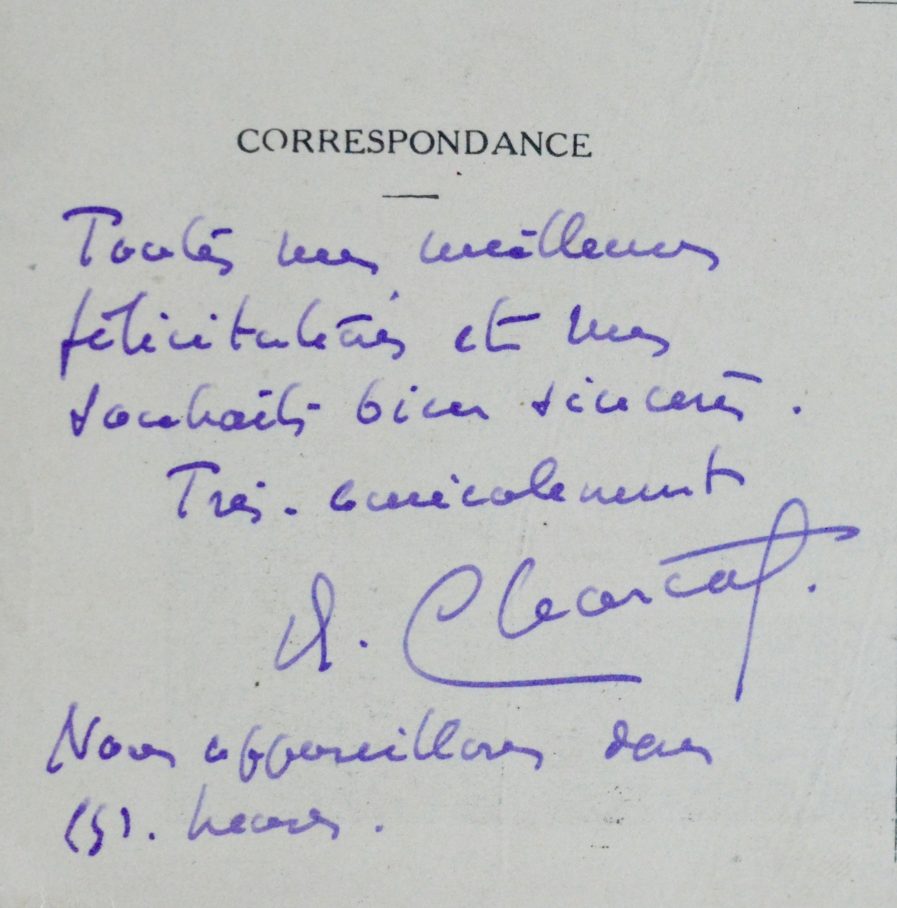 CORRESPONDANCE
Toutes mes meilleures
félicitations et mes
souhaits bien sincères.
Très amicalement
Charcot.
Nous appareillons dans
heures.